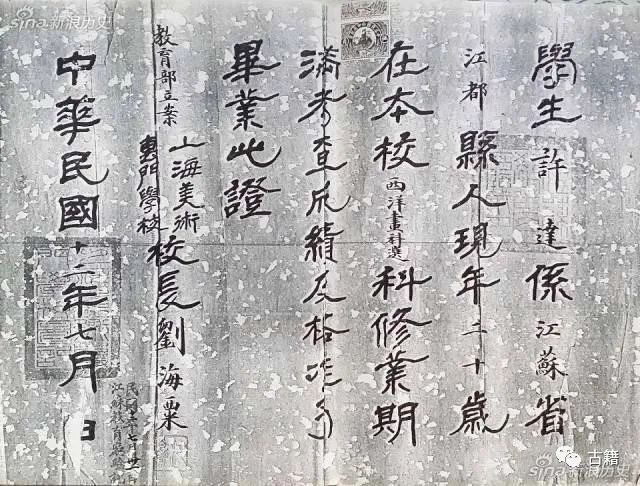 學生許達係江蘇省
江都縣人現年二十歲
在本校西洋畫科選科修業期
滿考查成績及格準予
畢業此證
教育部立案
上海美術
專門學校
校長劉海粟
中華民國十二年七月 日
sina新浪历史
古籍
sina新浪历史